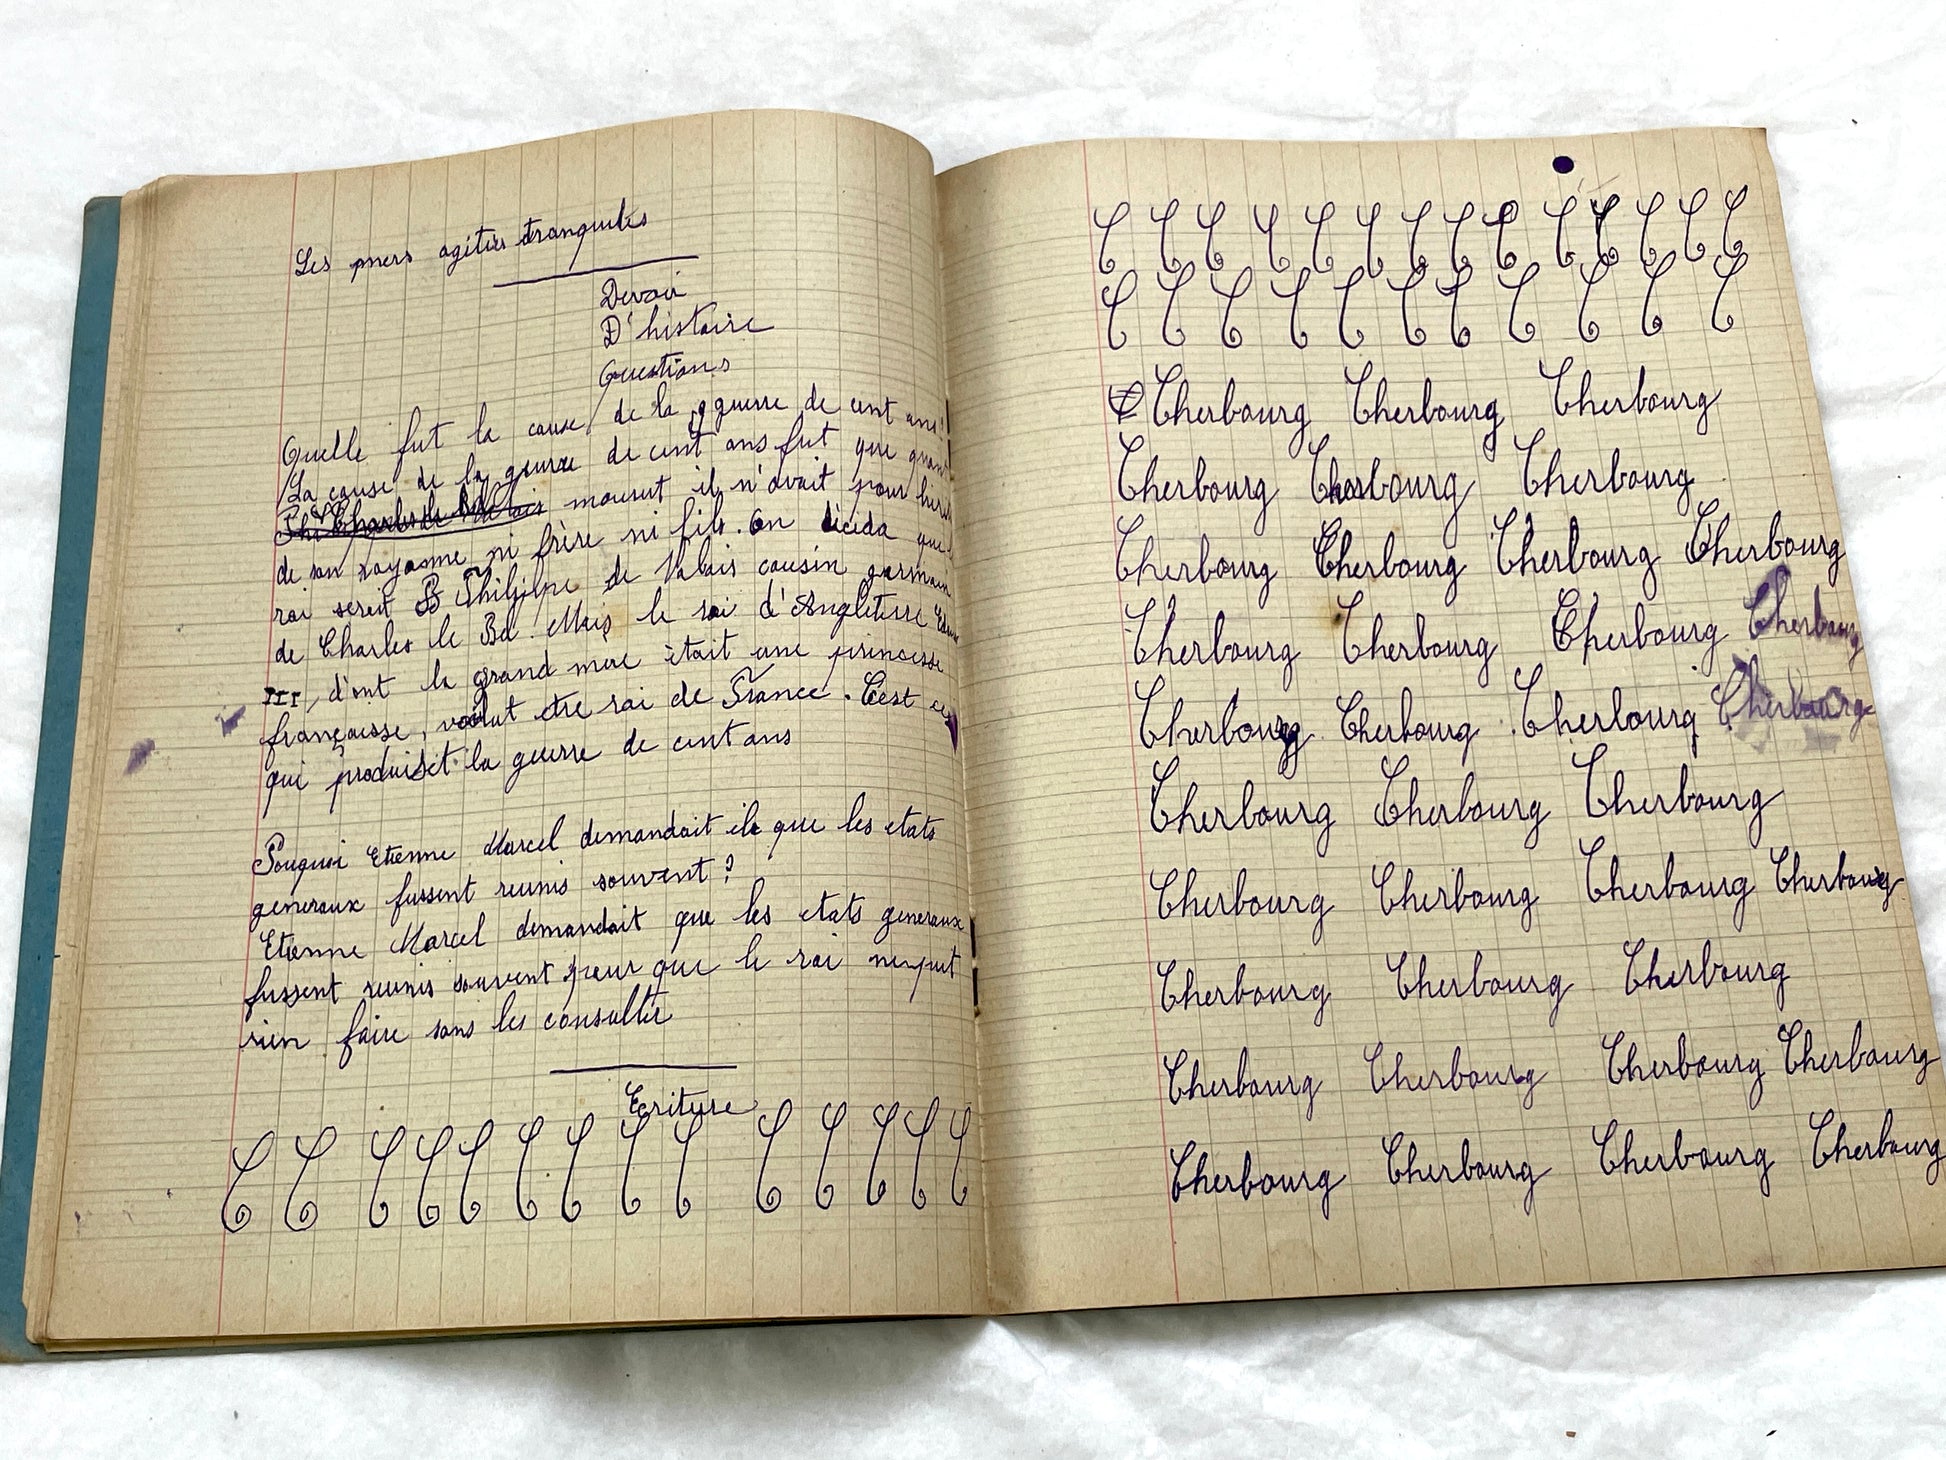 Les mers agitées tranquiles
Devoir
D'histoire
Questions
Quelle fut la cause de la guerre de cent ans?
La cause de la guerre de cent ans fut que quand
mourut il n'avait pour
de son royaume ni frère ni fils. On décida que
roi serait Philippe de Valois cousin germain
de Charles le Bel. Mais le roi d'Angleterre
III, d'ont la grand mere était une princesse
françaisse, voulut etre roi de France. C'est ce
qui produisit la guerre de cent ans
Pouquoi Etienne Marcel demandait ils que les etats
generaux fussent reunis souvent?
Etienne Marcel demandait que les etats generaux
fussent reunis souvent pour que le roi ne put
rien faire sans les consulter
Ecriture
C C C C C C C C C C C C C C
C C C C C C C C C C C C C C
C C C C C C C C C C C
Cherbourg Cherbourg Cherbourg
Cherbourg Cherbourg Cherbourg
Cherbourg Cherbourg Cherbourg Cherbourg
Cherbourg Cherbourg Cherbourg Cherbourg
Cherbourg Cherbourg Cherbourg Cherbourg
Cherbourg Cherbourg Cherbourg
Cherbourg Cherbourg Cherbourg Cherbourg
Cherbourg Cherbourg Cherbourg
Cherbourg Cherbourg Cherbourg Cherbourg
Cherbourg Cherbourg Cherbourg Cherbourg